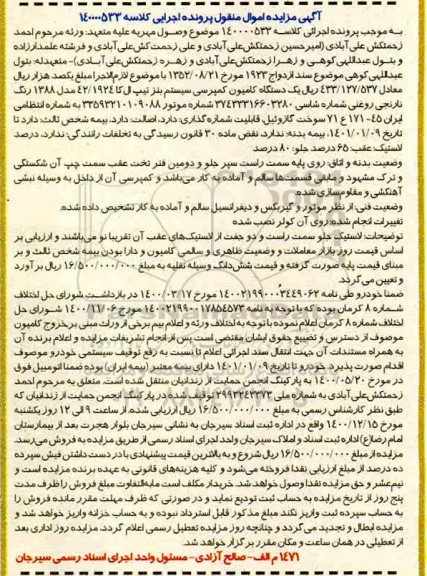 آگهی مزایده اموال منقول پرونده اجرایی کلاسه ۱۴۰۰۰۰۵۳۳
به موجب پرونده اجرائی کلاسه ۱۴۰۰۰۰۵۳۳ موضوع وصول مهریه علیه متعهد: ورثه مرحوم احمد
زحمتکش علی آبادی (امیرحسین زحمتکش‌علی‌آبادی و علی زحمت‌کش‌علی‌آبادی و فرشته علمدارزاده
و بتول عبداللهی‌کوهی و زهرا زحمتکش‌علی‌آبادی و زهره زحمتکش‌علی‌آبادی)- متعهدله: بتول
عبداللهی کوهی موضوع سند ازدواج ۱۹۲۳ مورخ ۱۳۵۲/۰۸/۲۱ با موضوع لازم‌الاجرا مبلغ یکصد هزار ریال
معادل ۴۳۳/۱۳۷/۵۳۷ ریال یک دستگاه کامیون کمپرسی سیستم بنز تیپ ال‌کا ۴۲/۱۹۲۴ مدل ۱۳۸۸ رنگ
نارنجی روغنی شماره شاسی ۳۷۴۳۳۳۱۶۶۰۳۲۸۰ شماره موتور ۳۳۵۹۳۲۱۰۱۰۹۰۸۸ به شماره انتظامی
ایران ۴۵- ۱۷۱ ع ۷۱ سوخت گازوئیل، قابلیت شماره‌گذاری: دارد، اصالت: دارد، بیمه شخص ثالث: دارد تا
تاریخ ۱۴۰۱/۰۱/۰۹، بیمه بدنه: ندارد، نقض ماده ۳۰ قانون رسیدگی به تخلفات رانندگی: ندارد، درصد
لاستیک: عقب: ۶۵ درصد جلو: ۸۰ درصد
وضعیت بدنه و اتاق: روی پایه سمت راست سپر جلو و دومین فنر تخت عقب سمت چپ آن شکستگی
و ترک مشهود و مابقی قسمت‌ها سالم و آماده به کار می‌باشد و کمپرسی آن از داخل به وسیله نبشی
آهنکشی و مقاوم‌سازی شده.
وضعیت فنی: از نظر موتور و گیربکس و دیفرانسیل سالم و آماده به کار تشخیص داده شده.
تغییرات انجام شده: روی آن کولر نصب شده
توضیحات: لاستیک جلو سمت راست و دو جفت از لاستیک‌های عقب آن تقریبا نو می‌باشند و ارزیابی بر
اساس قیمت روز بازار معاملات و وضعیت ظاهری و سالمی کامیون و دارا بودن بیمه شخص ثالث و بر
مبنای قیمت پایه صورت گرفته و قیمت شش‌دانگ وسیله نقلیه به مبلغ ۱۶/۵۰۰/۰۰۰/۰۰۰ ریال برآورد
و تعیین می‌گردد.
ضمنا خودرو طی نامه ۱۴۰۰۲۱۹۹۰۰۰۳۴۴۹۰۶۲ مورخ ۱۴۰۰/۰۳/۱۷ در بازداشت شورای حل اختلاف
شماره ۸ کرمان بوده که با توجه به نامه ۱۷۸۵۴۵۷۳ ۱۴۰۰۲۱۹۹۰۰ مورخ ۱۴۰۰/۱۱/۰۶ شورای حل
اختلاف شماره ۸ کرمان اعلام نموده با توجه به اختلاف ورثه و اعلام بیم برخی از وراث مبنی بر خروج کامیون
موصوف از دسترس و تضییع حقوق ایشان مقتضی است پس از انجام تشریفات مزایده و اعلام برنده آن
به همراه مستندات آن جهت انتقال سند اجرائی اعلام تا نسبت به رفع توقیف سیستمی خودرو موصوف
اقدام صورت پذیرد خودرو تا تاریخ ۱۴۰۱/۰۱/۰۹ دارای بیمه معتبر (بیمه ایران) بوده ضمنا اتومبیل فوق
در مورخ ۱۴۰۰/۰۵/۲۰ به پارکینگ انجمن حمایت از زندانیان منتقل شده است. متعلق به مرحوم احمد
زحمتکش‌علی‌آبادی به شماره ملی ۲۹۹۳۲۴۳۳۷۳ توقیف شده در پارکینگ انجمن حمایت از زندانیان که
طبق نظر کارشناس رسمی به مبلغ ۱۶/۵۰۰/۰۰۰/۰۰۰ ریال ارزیابی شده، از ساعت ۹ الی ۱۲ روز یکشنبه
مورخ ۱۴۰۰/۱۲/۱۵ واقع در اداره ثبت اسناد سیرجان به نشانی سیرجان بلوار هجرت بعد از بیمارستان
امام رضا(ع) اداره ثبت اسناد و املاک سیرجان واحد اجرای اسناد رسمی از طریق مزایده به فروش می‌رسد.
مزایده از مبلغ ۱۶/۵۰۰/۰۰۰/۰۰۰ ریال شروع و به بالاترین قیمت پیشنهادی با در دست داشتن فیش سپرده
ده درصد از مبلغ ارزیابی نقدا فروخته می‌شود و کلیه هزینه‌های قانونی به عهده برنده مزایده است و
نیم‌عشر و حق مزایده نقدا وصول خواهد شد. خریدار مکلف است مابه‌التفاوت مبلغ فروش را ظرف مدت
پنج روز از تاریخ مزایده به حساب ثبت تودیع نماید و در صورتی که ظرف مهلت مقرر مانده فروش را
به حساب سپرده ثبت واریز نکند مبلغ مذکور قابل استرداد نبوده و به حساب خزانه واریز خواهد شد و
مزایده ابطال و تجدید می‌گردد و چنانچه روز مزایده تعطیل رسمی اعلام گردد، مزایده روز اداری بعد
از تعطیلی در همان ساعت و مکان مقرر برگزار خواهد شد.
۱۴۷۱ م الف- صالح آزادی- مسئول واحد اجرای اسناد رسمی سیرجان